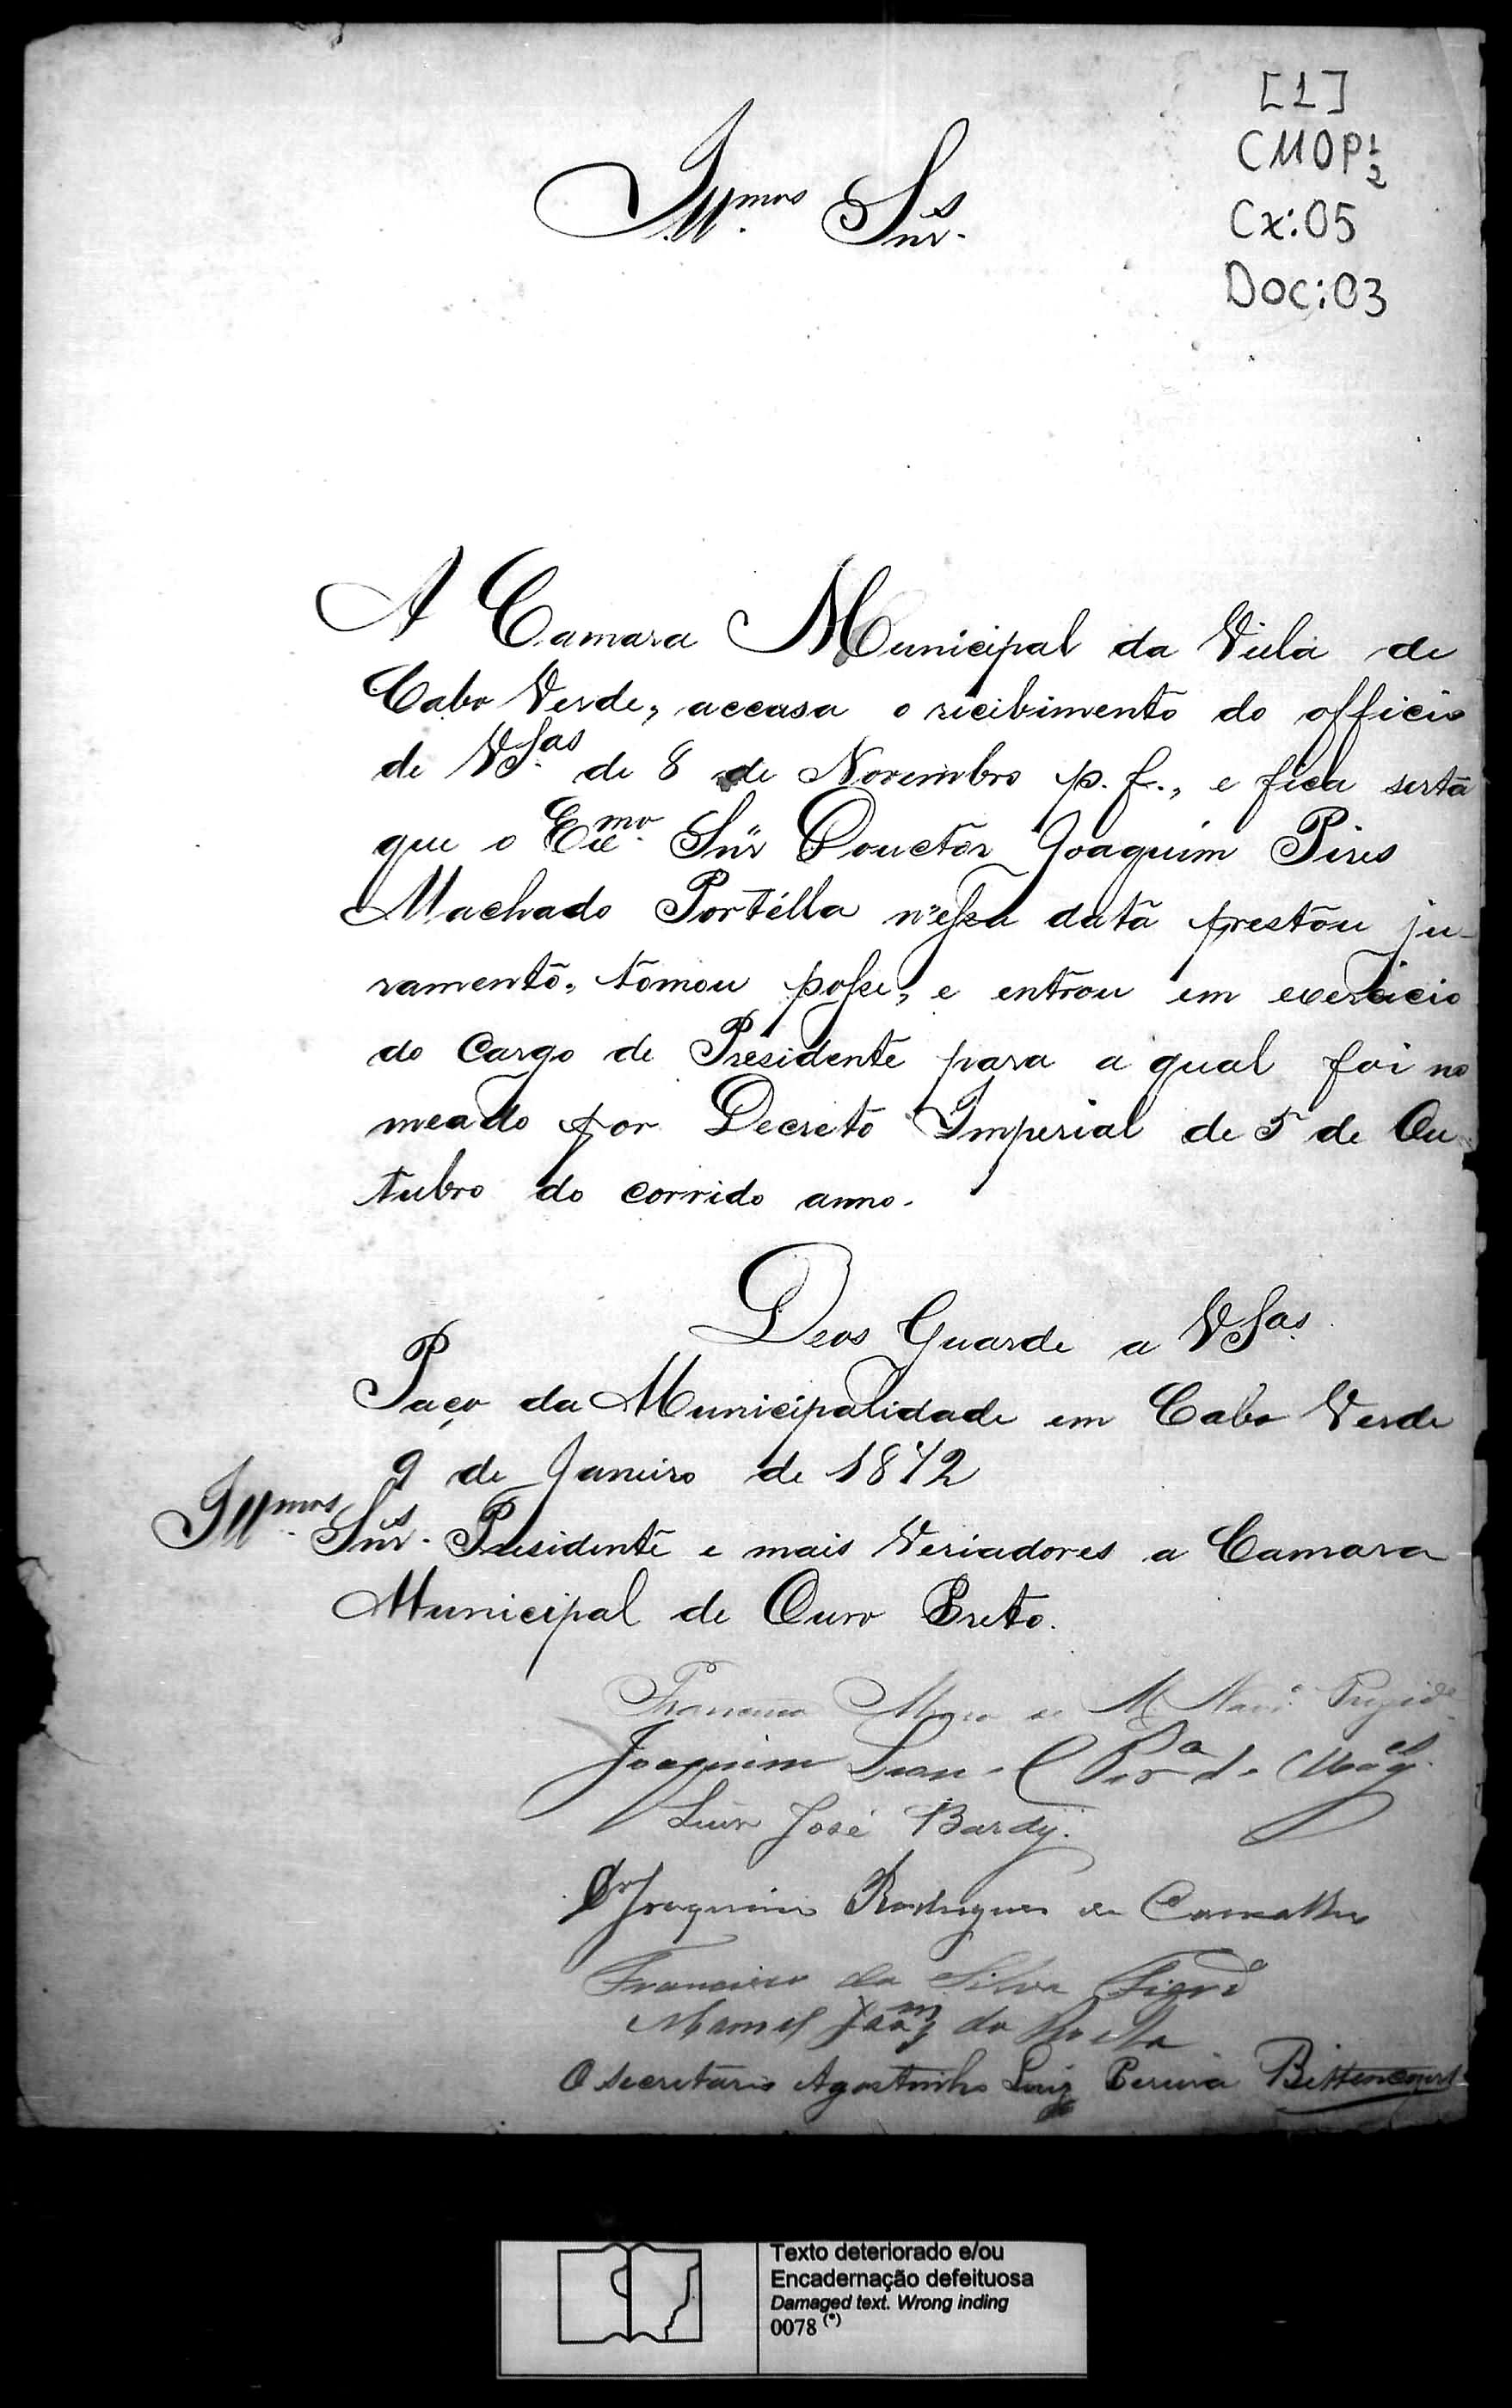 [1]
CMOP 1/2
Cx:05
Doc:03
Illmos. Snrs.
A Camara Municipal da Villa de
Cabo Verde, accusa o recibimento do officio
de VSas. de 8 de Novembro p. f., e fica serta
que o Exmo. Snr Douctor Joaquim Pires
Machado Portélla n'essa data prestou ju-
ramento, tomou posse, e entrou em exercicio
do Cargo de Presidente para a qual foi no
meado por Decreto Imperial de 5 de Ou
tubro do corrido anno.
Deos Guarde a VSas.
Paço da Municipalidade em Cabo Verde
9 de Janeiro de 1872
Illmos. Snrs. Presidente e mais Veriadores a Camara
Municipal de Ouro Preto.
Joaquim
Luis José Bardy.
Dr Joaquim Rodrigues de Carvalho
Francisco da Silva
Manoel da
O secretario Agostinho Luiz Pereira Bittencourt
Texto deteriorado e/ou
Encadernação defeituosa
Damaged text. Wrong inding
0078 (*)